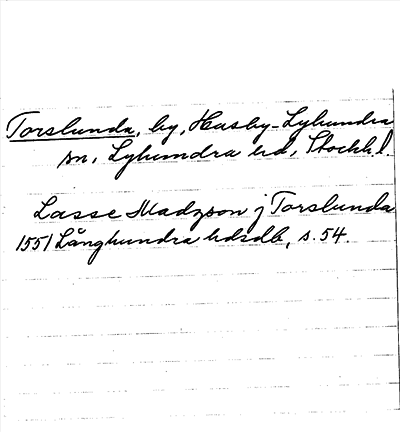 Torslunda, by, Husby-Lyhundra
sn, Lyhundra hd, Stockh.l.
Lasse Madzson j Torslunda
1551 Långhundra hdsdb, s. 54.